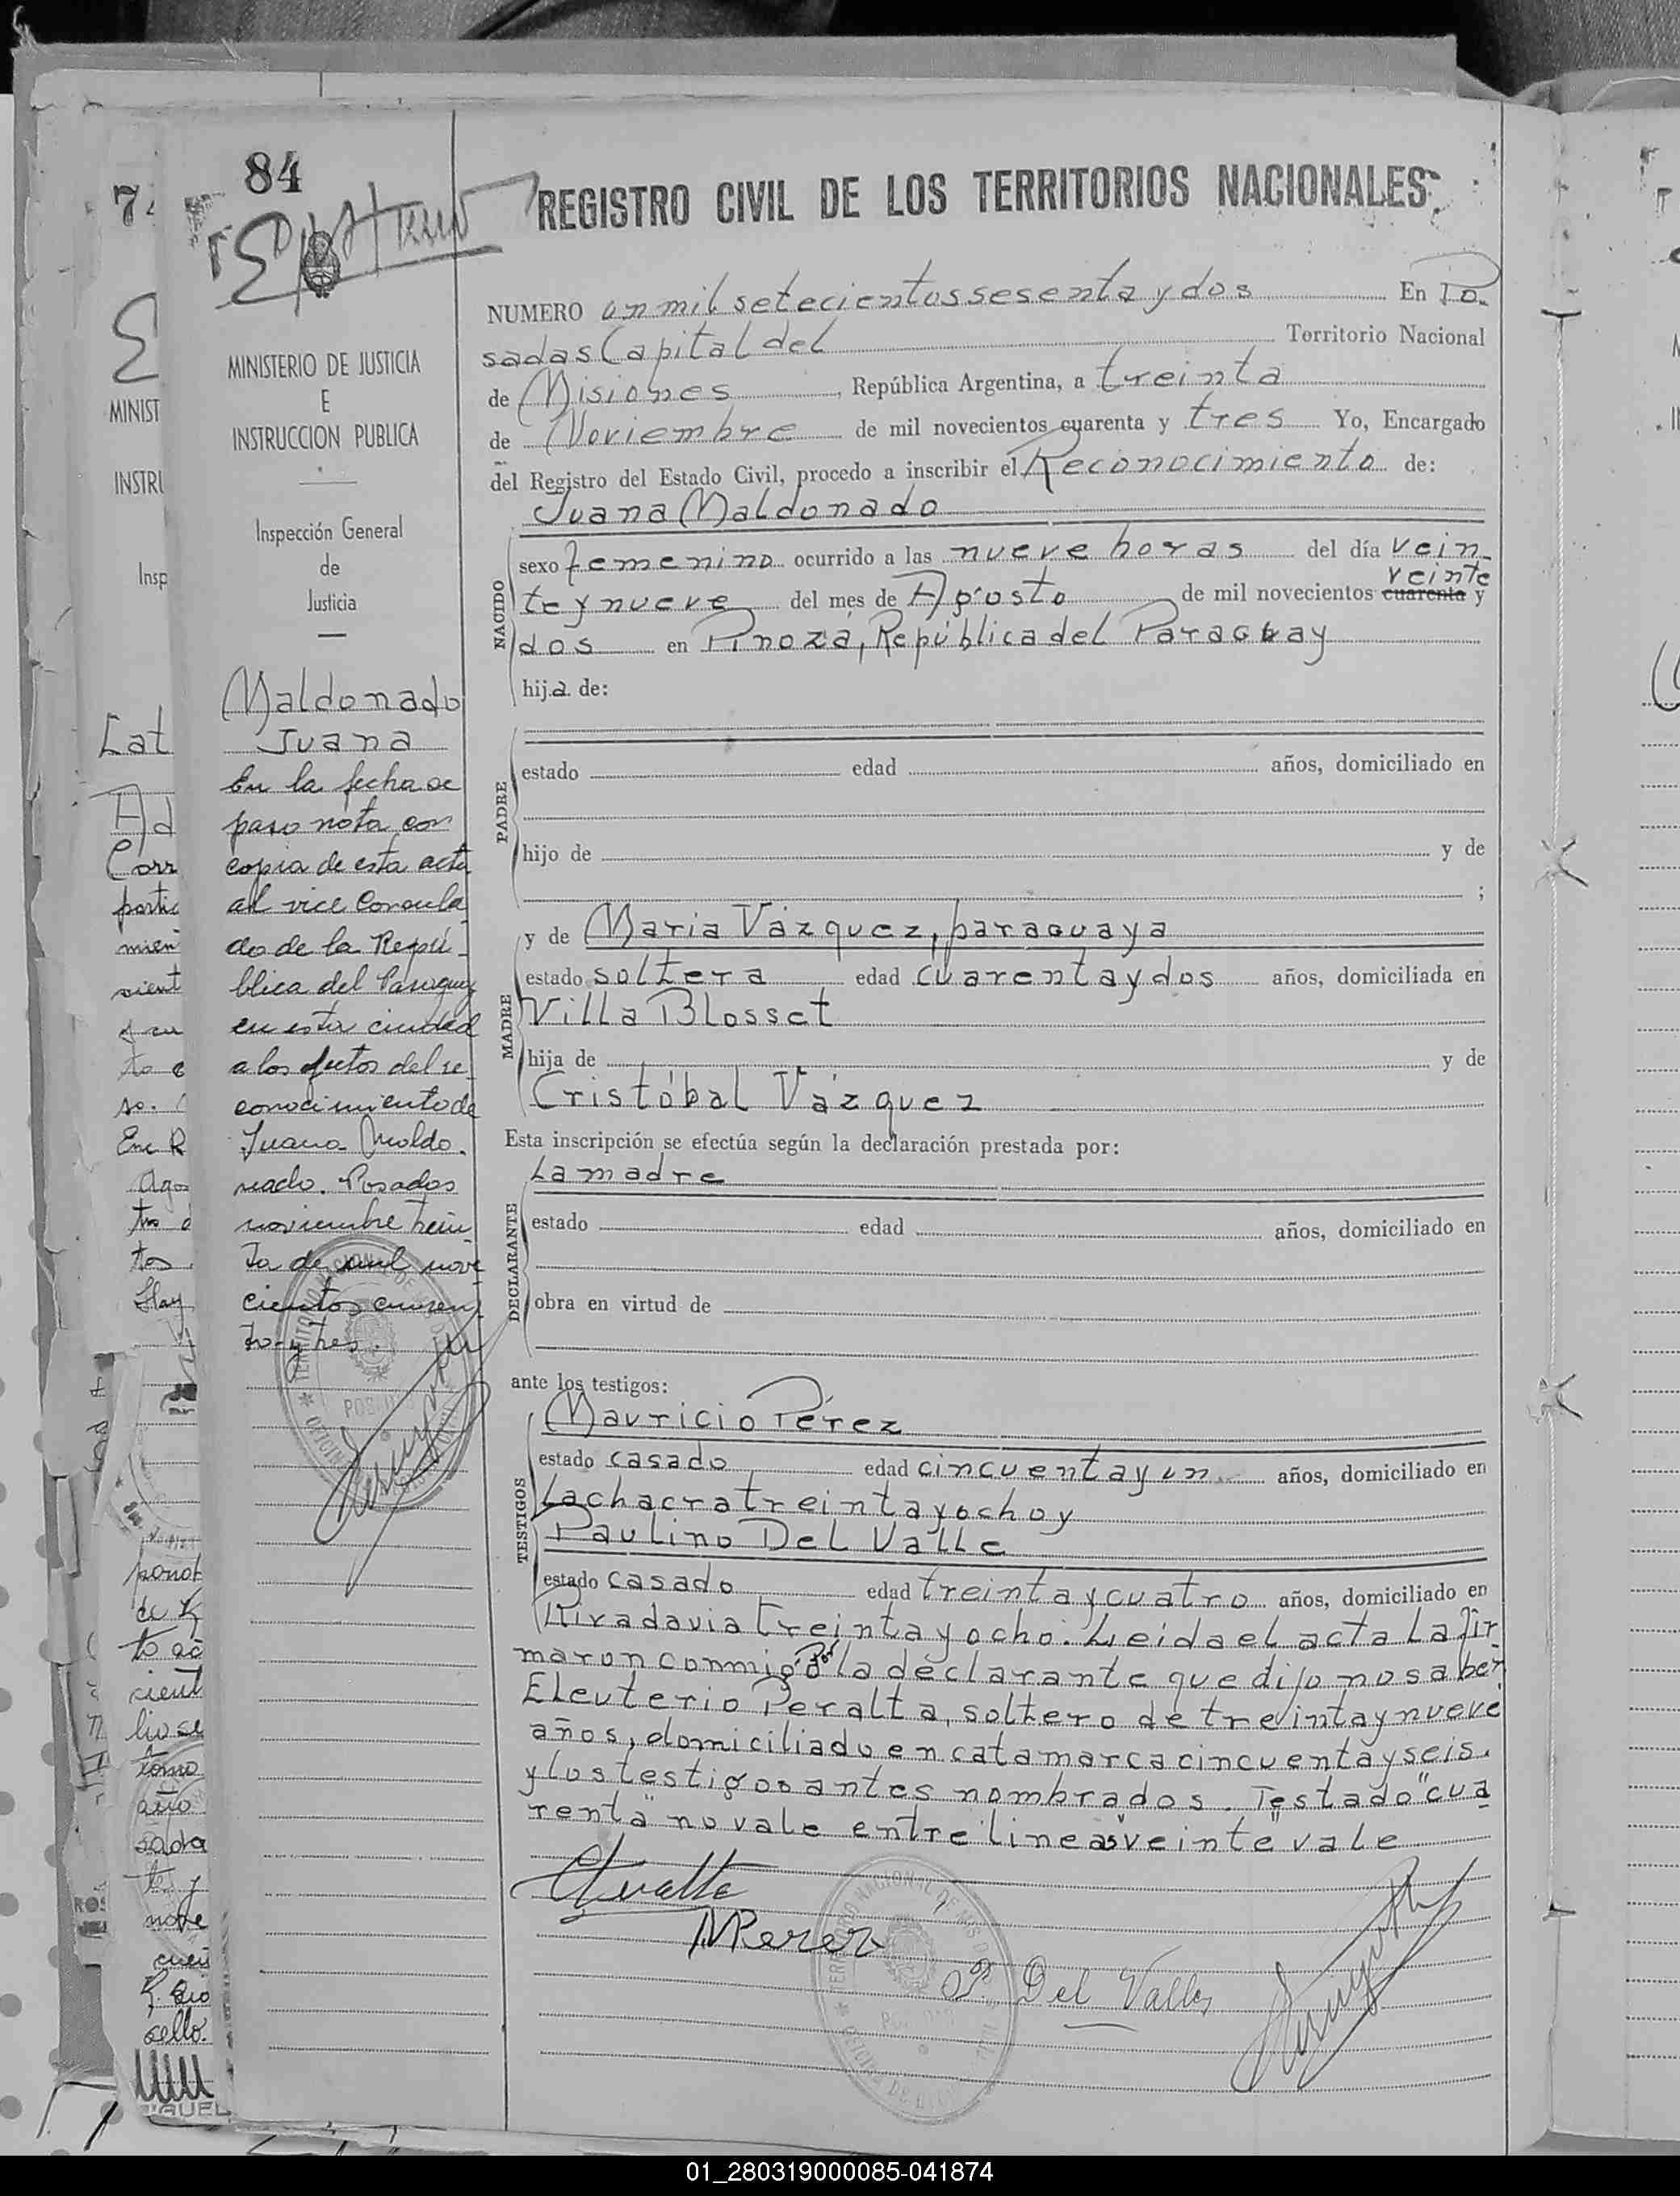 84
REGISTRO CIVIL DE LOS TERRITORIOS NACIONALES
MINISTERIO DE JUSTICIA
E
INSTRUCCION PUBLICA
Inspección General
de
Justicia
Maldonado
Juana
En la fecha se
paso nota con
copia de esta acta
al vice Consula
do de la Repú-
blica del Paraguay
en esta ciudad
a los efectos del re-
conocimiento de
Juana Maldo.
nado. Posadas
noviembre trein
ta de mil nove
cientos cuaren
ta y tres.
NUMERO un mil setecientos sesenta y dos En Po-
sadas Capital del Territorio Nacional
de Misiones, República Argentina, a treinta
de Noviembre de mil novecientos cuarenta y tres Yo, Encargado
del Registro del Estado Civil, procedo a inscribir el Reconocimiento de:
Juana Maldonado
NACIDO
sexo femenino ocurrido a las nueve horas del día vein-
veinte
te y nueve del mes de Agosto de mil novecientos cuarenta y
dos en Pirozá, República del Paraguay
hija de:
PADRE
estado edad años, domiciliado en
hijo de y de
;
y de Maria Vázquez, paraguaya
MADRE
estado soltera edad cuarenta y dos años, domiciliada en
Villa Blosset
hija de y de
Cristóbal Vázquez
Esta inscripción se efectúa según la declaración prestada por:
La madre
DECLARANTE
estado edad años, domiciliado en
obra en virtud de
ante los testigos:
TESTIGOS
Mauricio Pérez
estado casado edad cincuenta y un años, domiciliado en
La chacra treinta y ocho y
Paulino Del Valle
estado casado edad treinta y cuatro años, domiciliado en
Rivadavia treinta y ocho. Leida el acta la fir-
maron conmigo por la declarante que dijo no saber
Eleuterio Peralta, soltero de treinta y nueve
años, domiciliado en catamarca cincuenta y seis.
y los testigos antes nombrados. Testado "cua
renta" no vale entre lineas "veinte" vale
MPerez
P. Del Valle
01_280319000085-041874